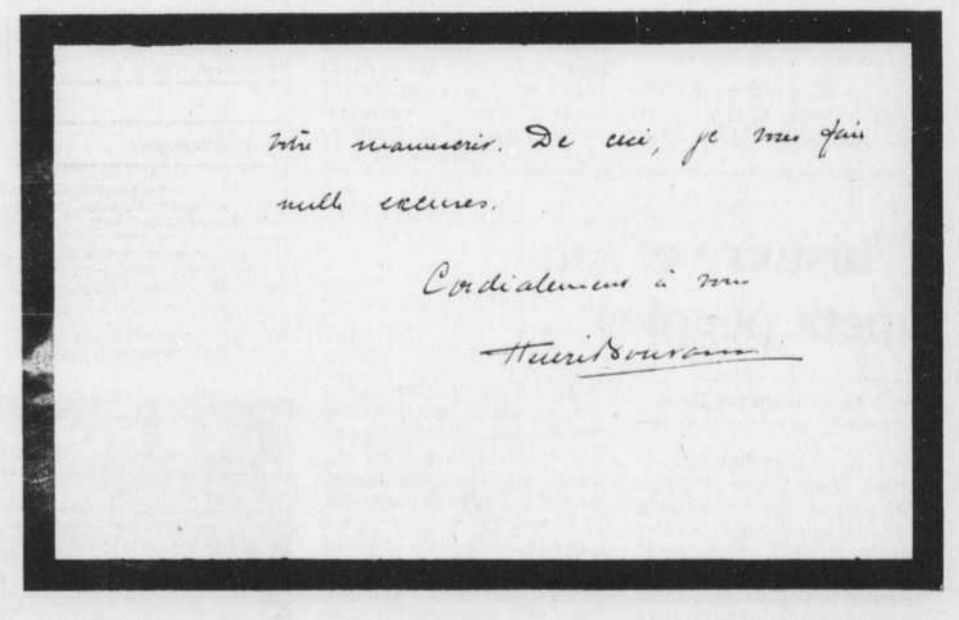 votre manuscrit. De ceci, je vous fais
mille excuses.
Cordialement à vous
Henri Bourassa